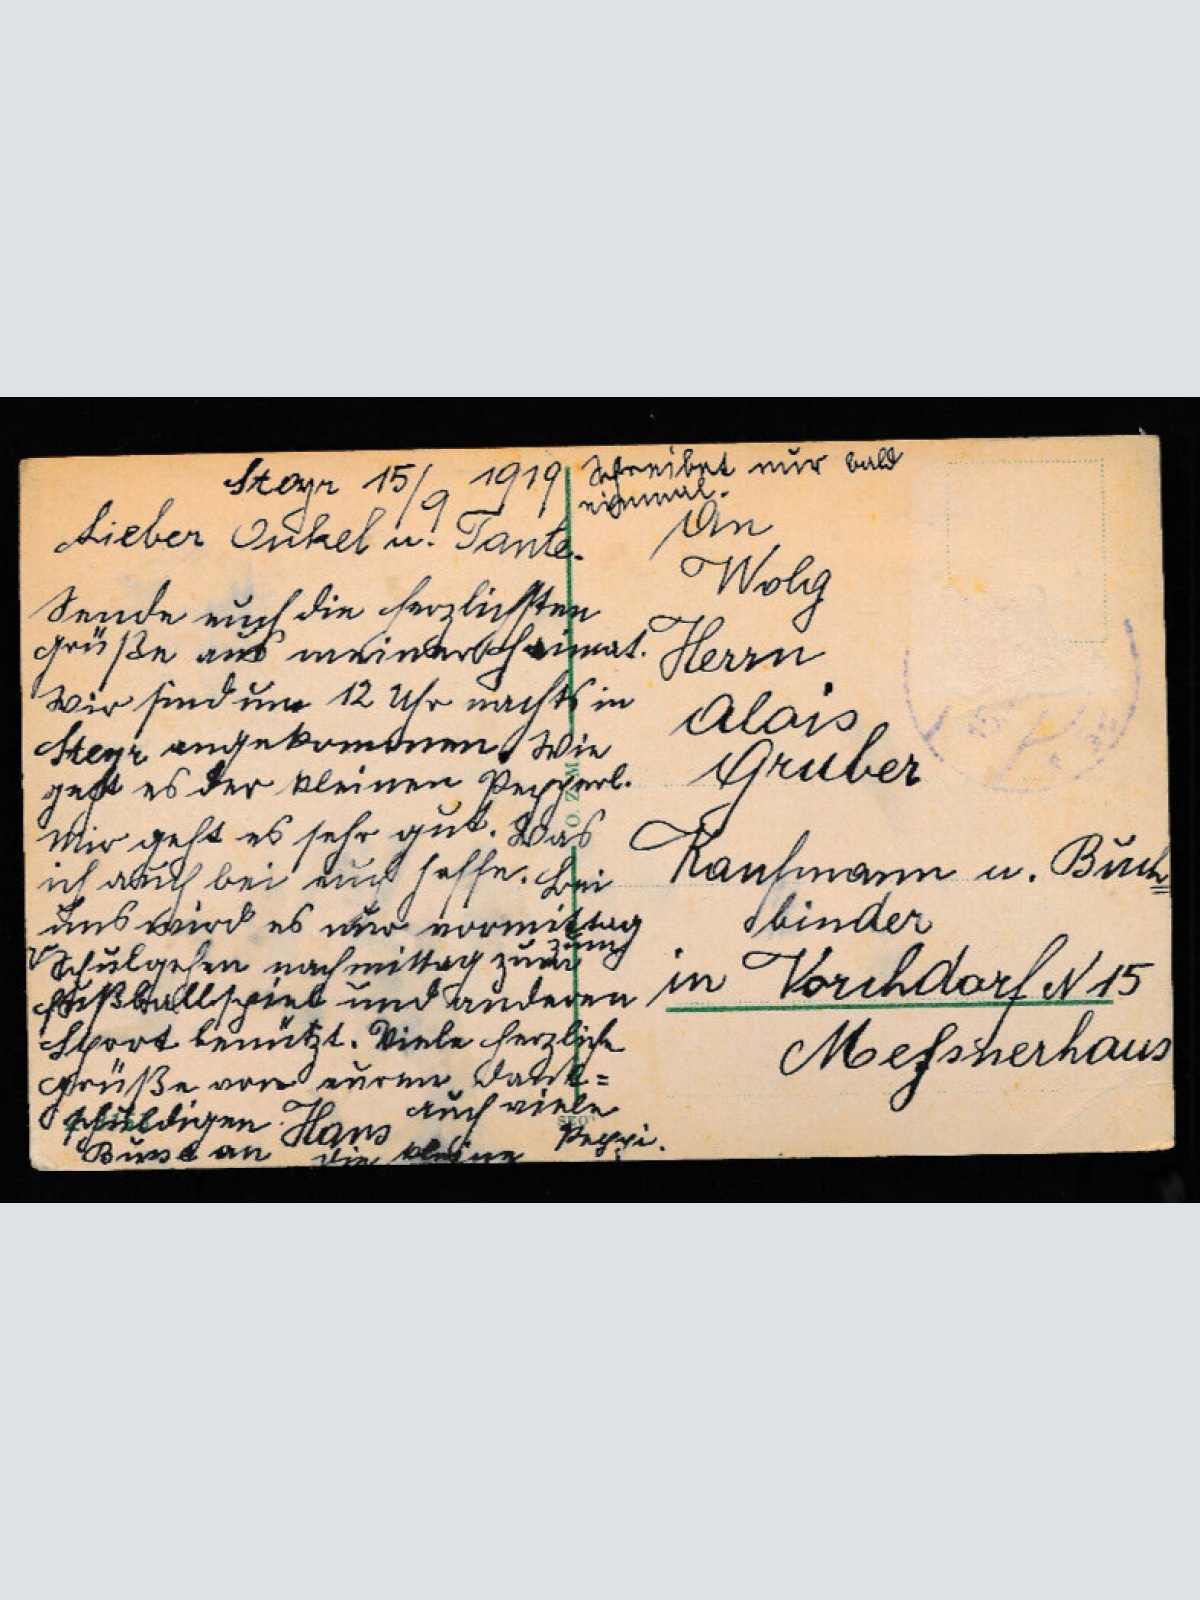 Steyr 15/9 1919
Lieber Onkel u. Tante.
Sende euch die herzlichsten
Grüße aus meiner Heimat.
Wir sind um 12 Uhr nachts in
Steyr angekommen. Wie
geht es der kleinen Pepperl.
Mir geht es sehr gut. Was
ich auch bei euch hoffe. Bei
uns wird es nur vormittag
Schulgehen nachmittag zum
Fußballspiel und anderen
Sport benützt. Viele herzliche
Grüße von eurem Dank=
schuldigen Hans auch viele
an die kleine Peppi.
Schreibet nur bald
einmal.
An
Wolg
Herrn
Alois
Gruber
Kaufmann u. Buch=
binder
in Vorchdorf N 15
Messnerhaus